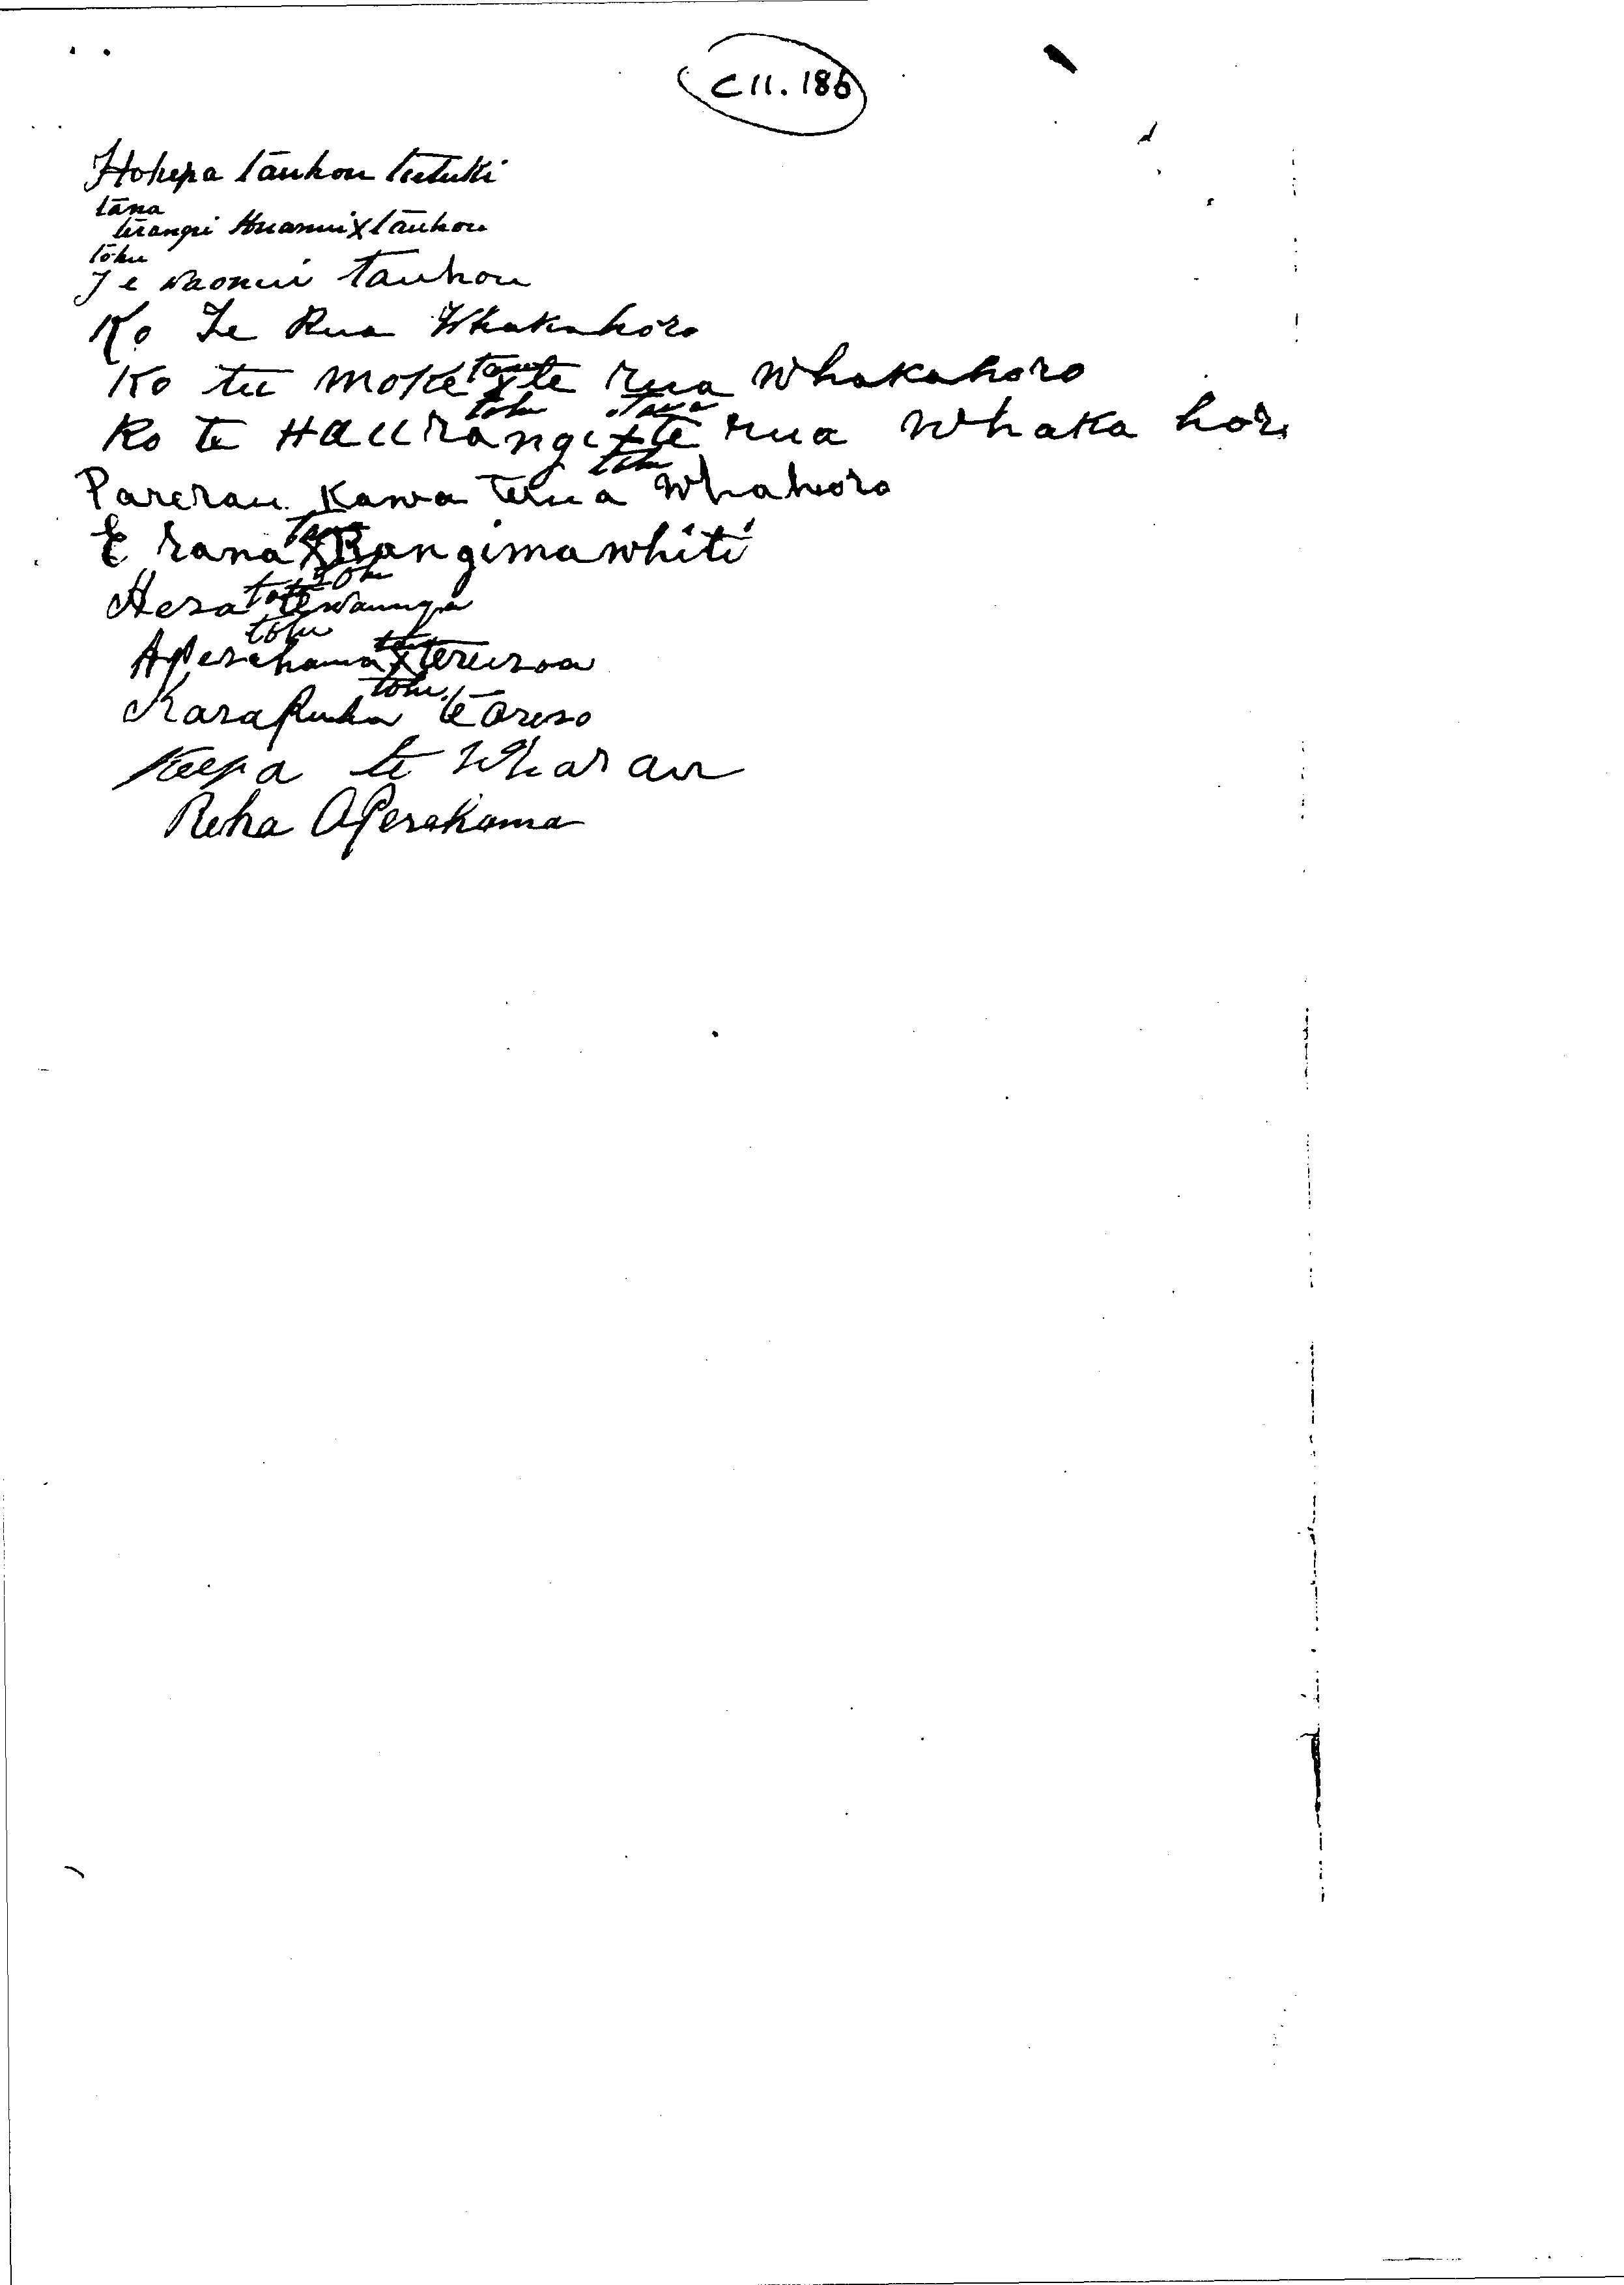 C11.186
Hohepa Tāuhou Tutuki
tāna
terangi Huanui X Tāuhou
tōhu
Te Naonui Tauhou
Ko Te Rua Whakahōro
tana
Ko tu moke x te rua whakahoro
tohu tana
Ko te Haurangi x te rua whaka horo
tohu
Parerau Kawa Terua Whahoro
tana
E rana X Rangimawhiti
tohu
Hera tewaunga
tohu
Aperahama x tereiroa
tohu
Karapuha te Oreso
Keepa te Wharau
Reha Aperahama